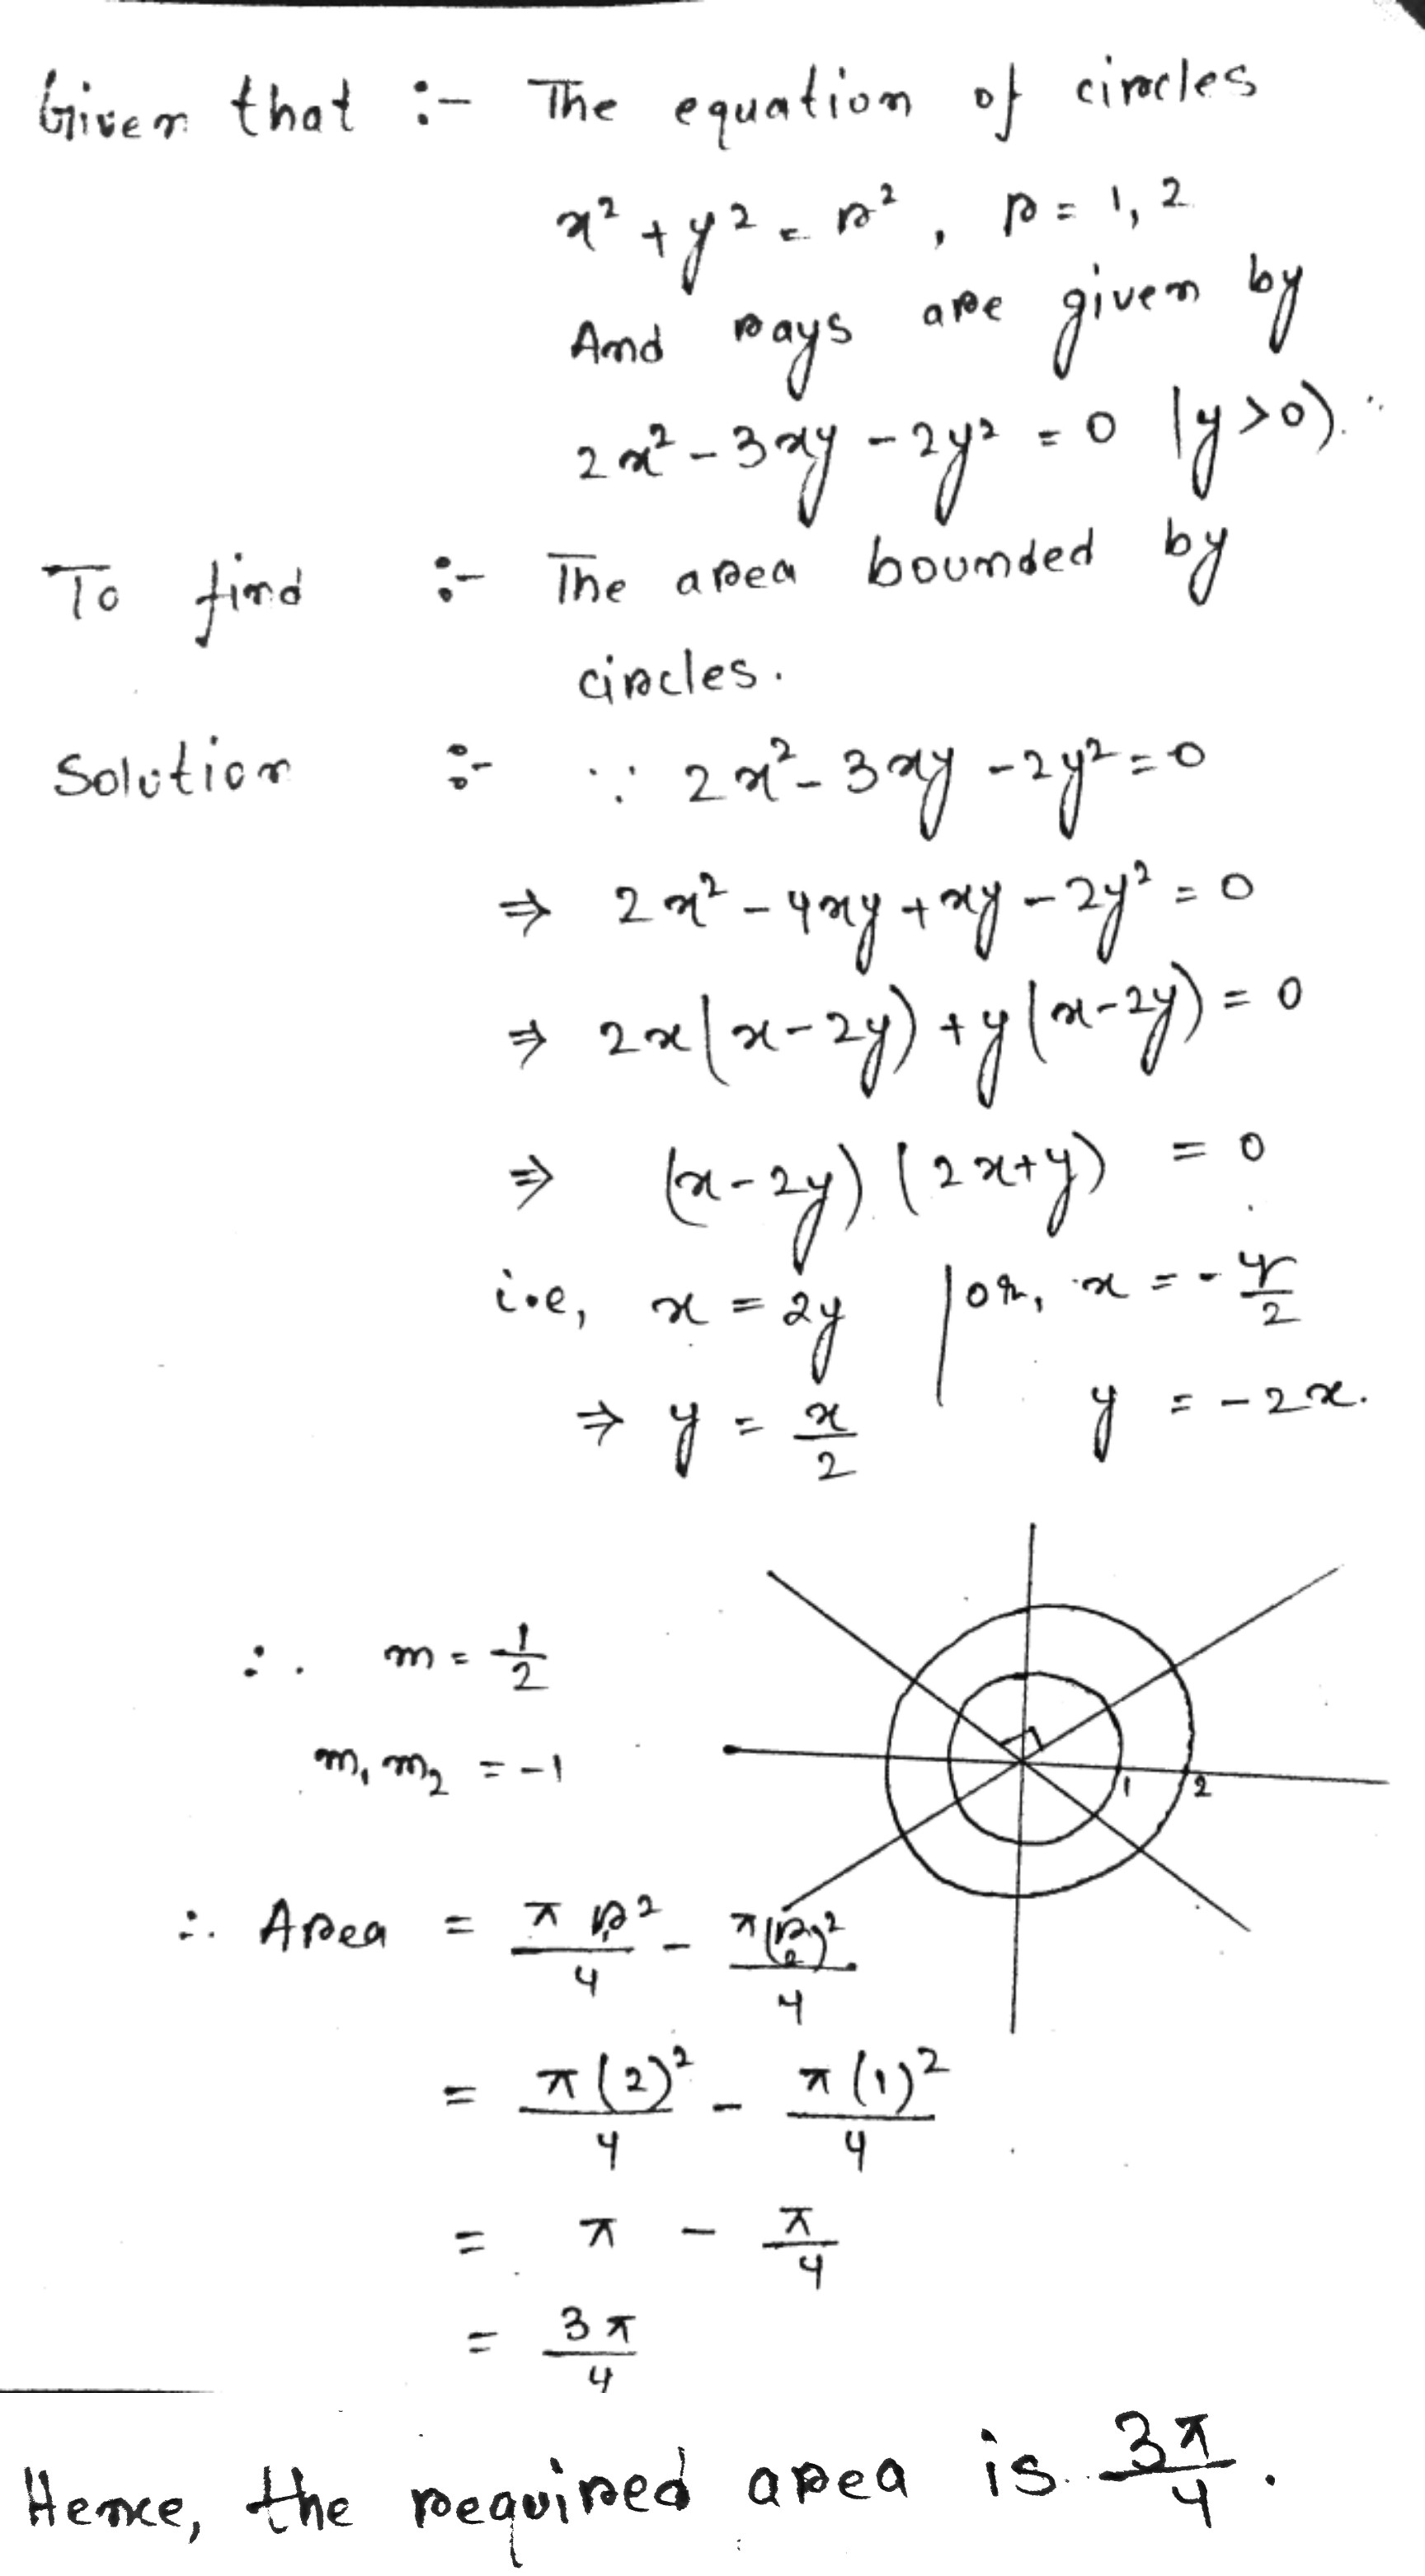 Given that :- The equation of circles
x² + y² = r², r = 1, 2
And rays are given by
2x² - 3xy - 2y² = 0 (y > 0).
To find :- The area bounded by
circles.
Solution :- ∵ 2x² - 3xy - 2y² = 0
⇒ 2x² - 4xy + xy - 2y² = 0
⇒ 2x(x - 2y) + y(x - 2y) = 0
⇒ (x - 2y) (2x + y) = 0
i.e, x = 2y | or, x = - y/2
⇒ y = x/2 | y = -2x.
∴ m = 1/2
m₁ m₂ = -1
1 2
∴ Area = π r₁²/4 - π(r₂)²/4
= π(2)²/4 - π(1)²/4
= π - π/4
= 3π/4
Hence, the required area is 3π/4.